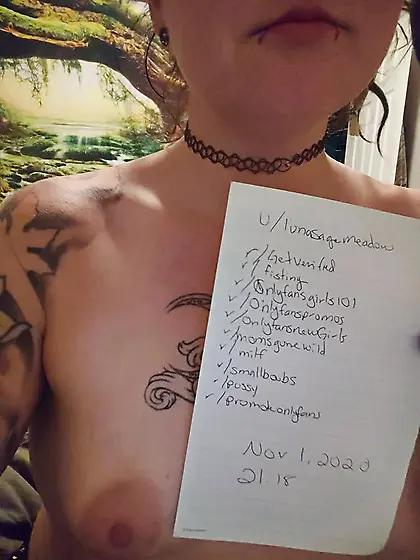 u/lunasagemeadow
r/GetVerified
r/fisting
r/Onlyfansgirls101
r/Onlyfanspromos
r/onlyfansnewGirls
r/momsgonewild
r/milf
r/smallboobs
r/pussy
r/promoteonlyfans
Nov 1, 2020
21:18